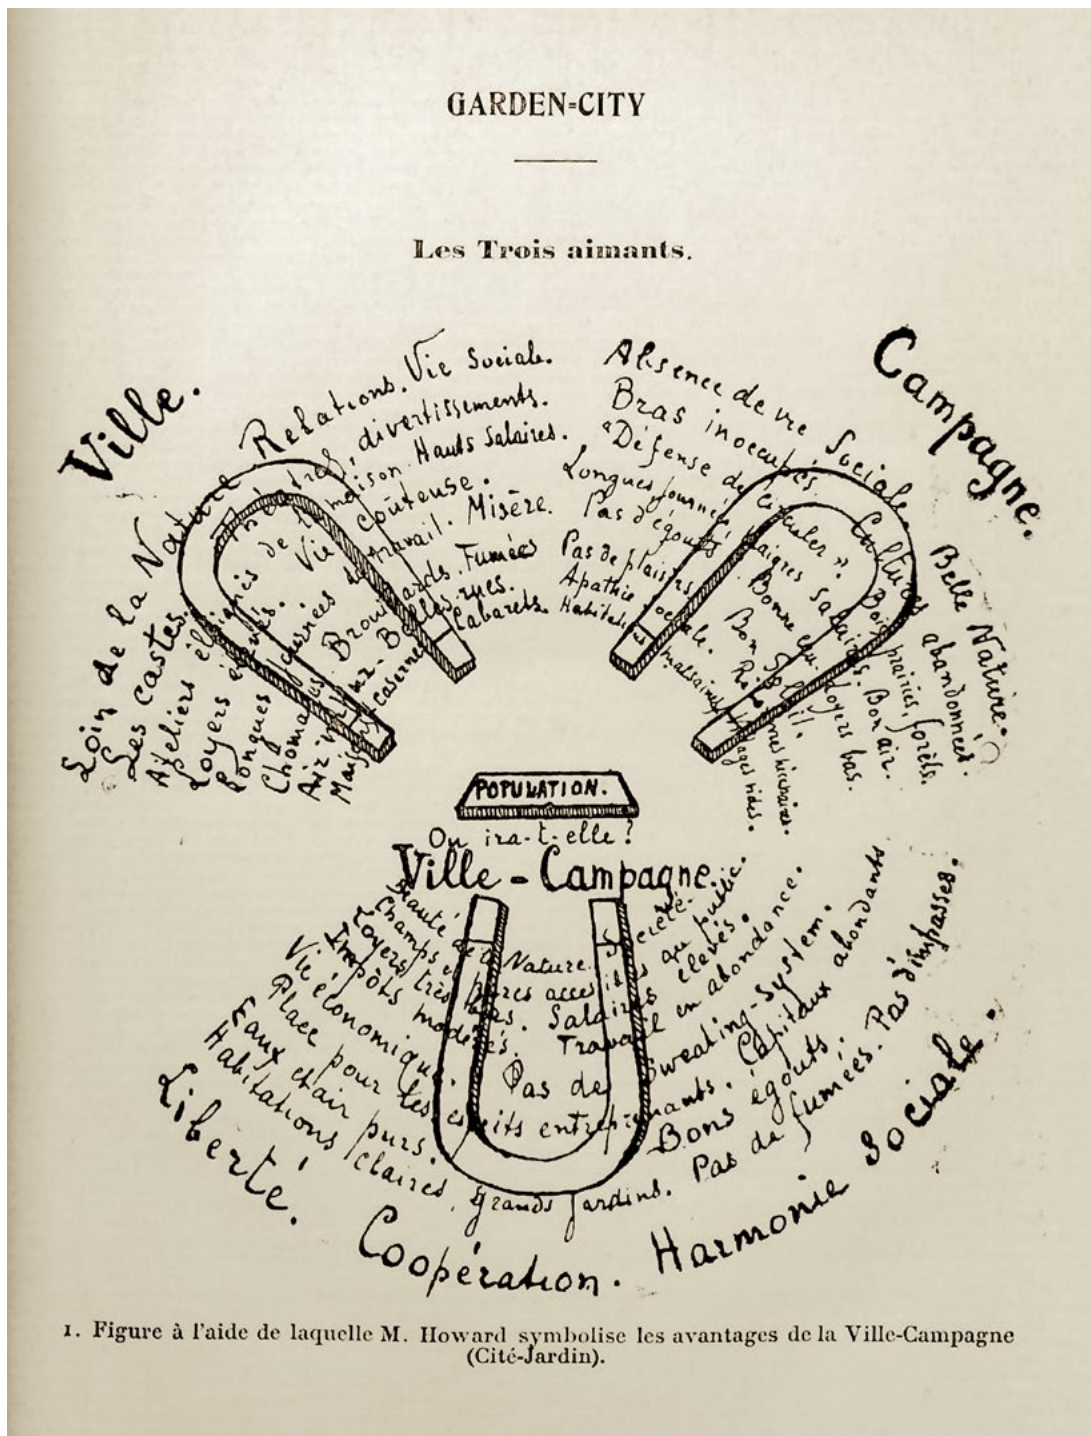 GARDEN-CITY
Les Trois aimants.
Ville.
Loin de la Nature. Relations. Vie Sociale.
Les castes. Théâtres, divertissements.
Ateliers éloignés de la maison. Hauts Salaires.
Loyers élevés. Vie coûteuse.
Longues journées de travail. Misère.
Chomages. Brouillards. Fumées
Air impur. Belles rues.
Maisons casernes. Cabarets.
Campagne.
Absence de vie Sociale. Belle Nature.
Bras inoccupés. Cultures abandonnées.
"Défense de circuler". Bois, prairies, forêts.
Longues journées, maigres Salaires. Bon air.
Pas d'égouts. Bonne eau. Loyers bas.
Pas de plaisirs. Bon Soleil.
Apathie Sociale.
Habitations malsaines. Villages vides.
POPULATION.
Ou ira-t-elle?
Ville-Campagne.
Beauté de la Nature. Société.
Champs et parcs accessibles au public.
Loyers très bas. Salaires élevés.
Impôts modérés. Travail en abondance.
Vie économique. Pas de Sweating-System.
Place pour les esprits entreprenants. Capitaux abondants
Eaux et air purs. Bons égouts.
Habitations claires, grands jardins. Pas de fumées. Pas d'impasses.
Liberté. Coopération. Harmonie Sociale.
1. Figure à l'aide de laquelle M. Howard symbolise les avantages de la Ville-Campagne
(Cité-Jardin).